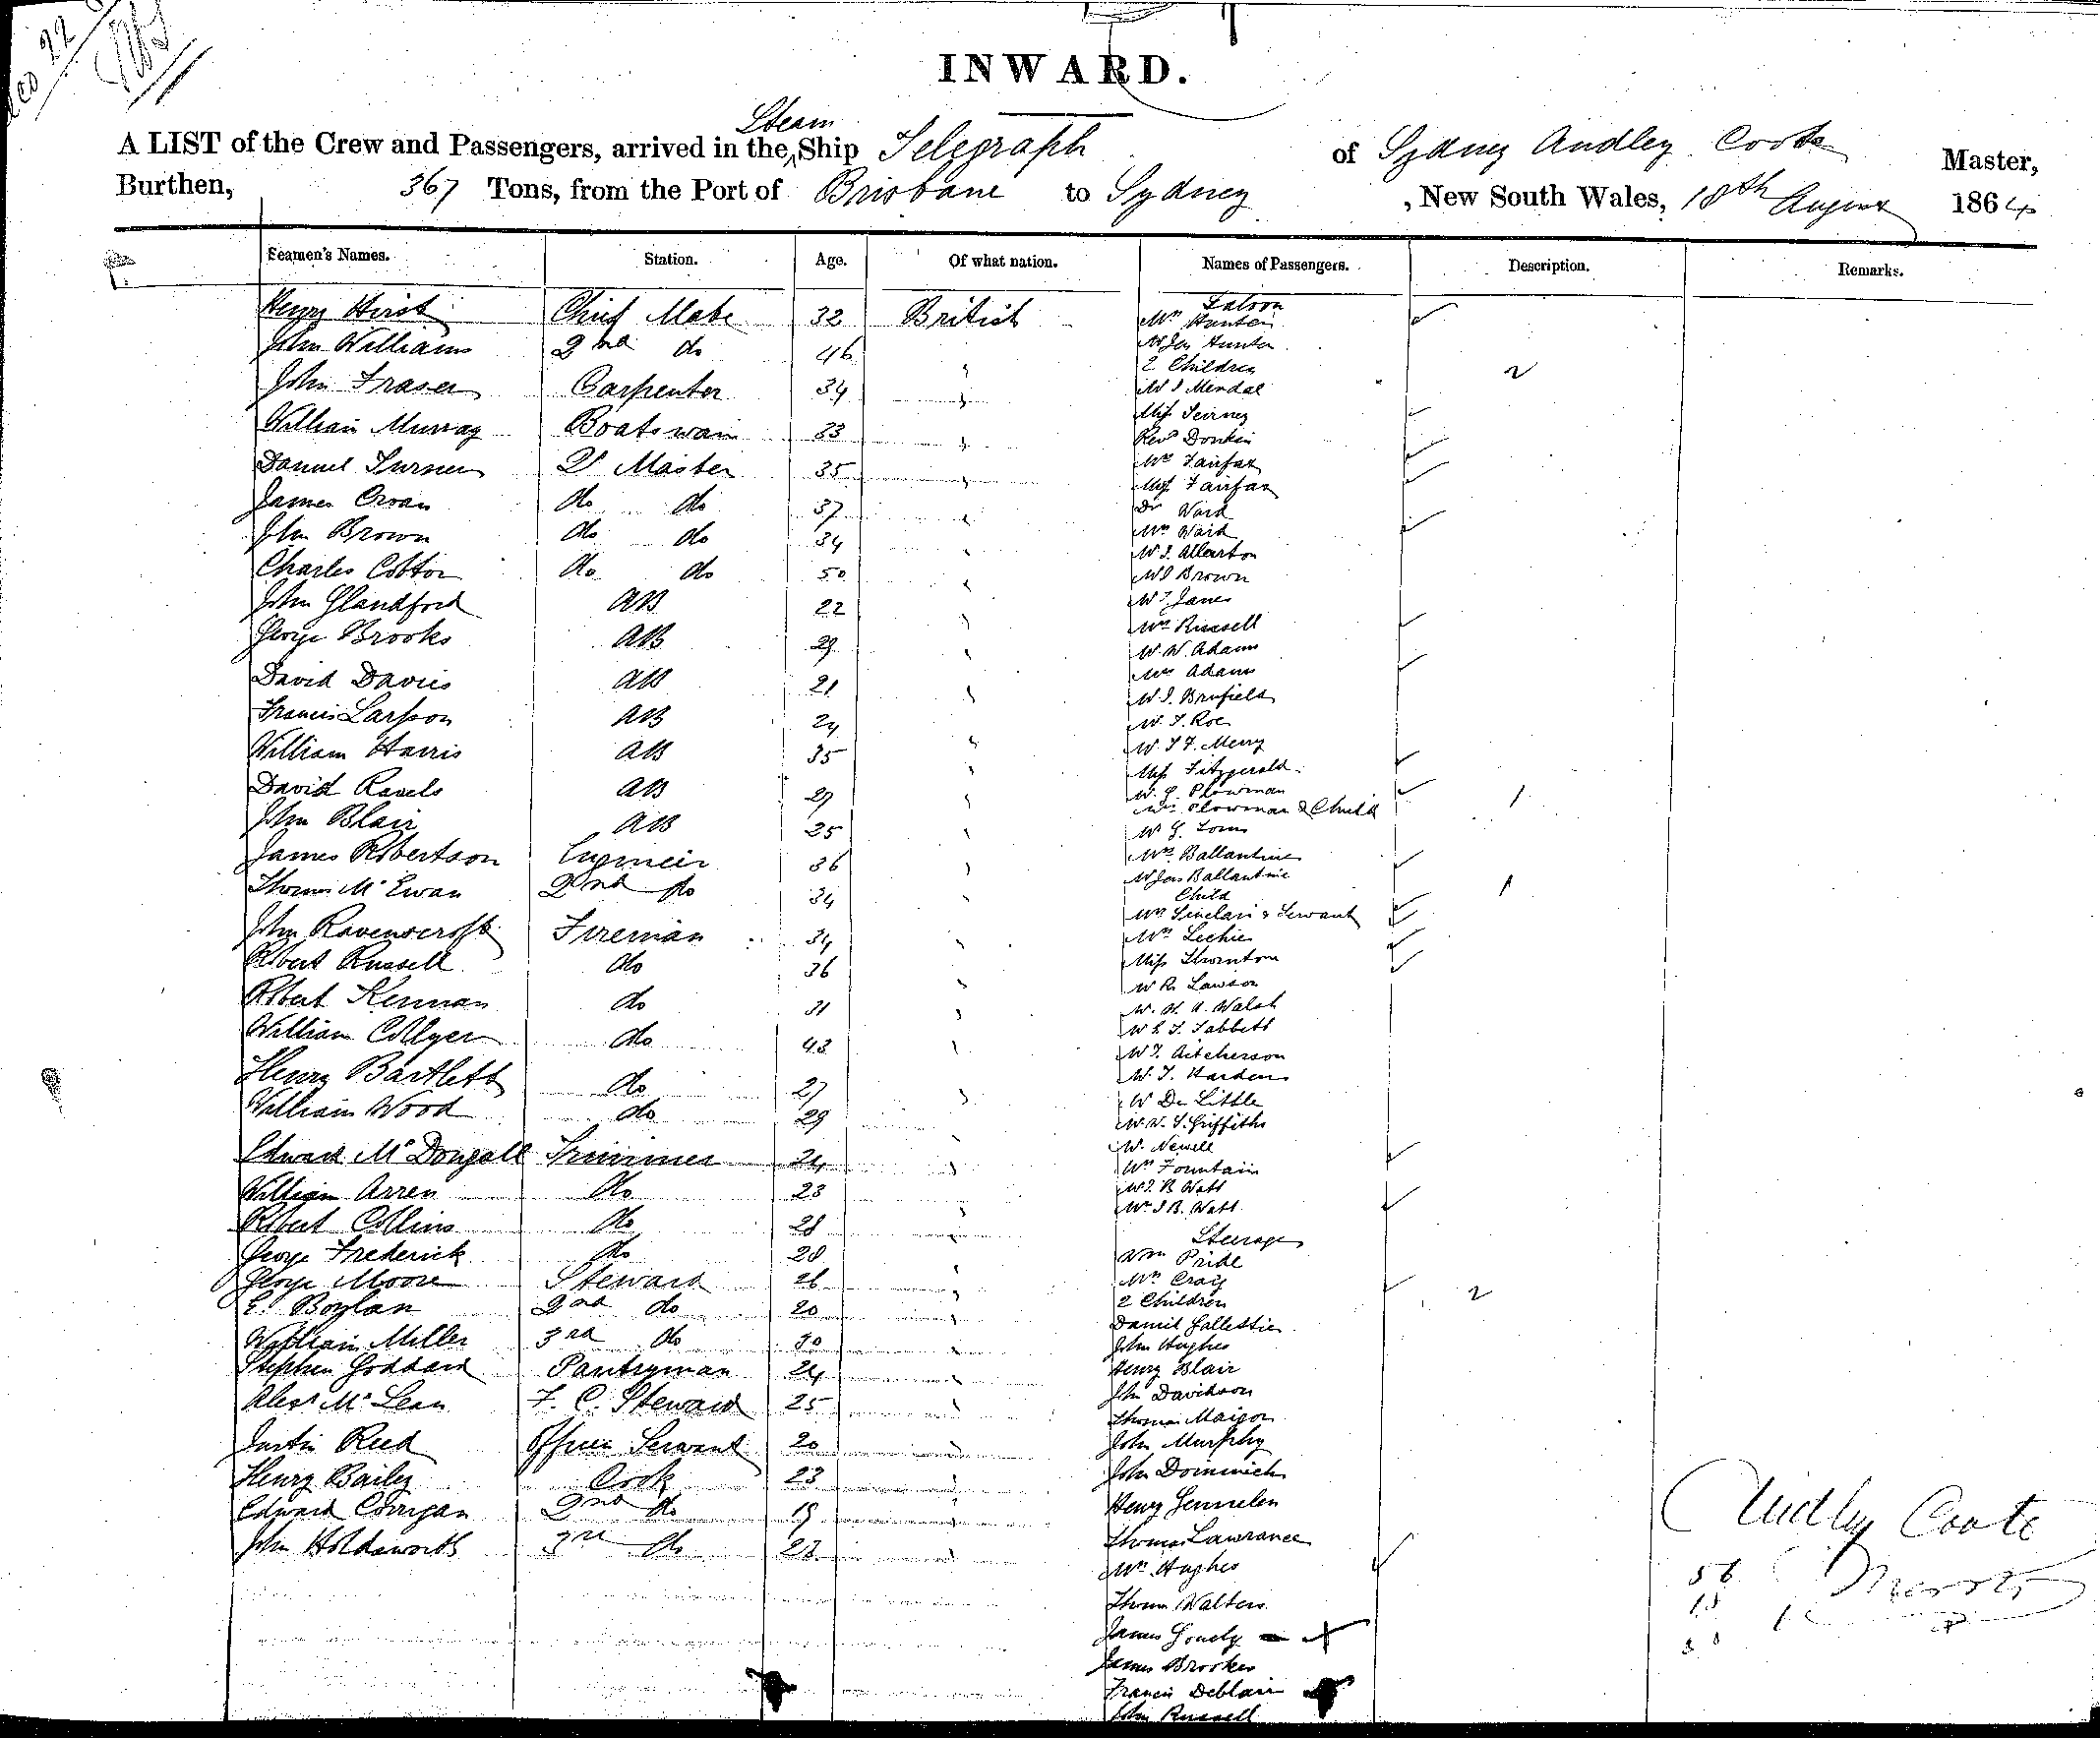 INWARD.
Steam
A LIST of the Crew and Passengers, arrived in the Ship Telegraph of Sydney Audley Coote Master,
Burthen, 367 Tons, from the Port of Brisbane to Sydney, New South Wales, 18th August 1864
Seamen's Names. Station. Age. Of what nation. Names of Passengers. Description. Remarks.
Henry Hirst Chief Mate 32 British
John Williams 2nd do 46 "
John Fraser Carpenter 34 "
William Murray Boatswain 33 "
Daniel Turner Qr Master 35 "
James Cowan do do 37 "
John Brown do do 34 "
Charles Cotton do do 50 "
John Glandford AB 22 "
George Brooks AB 29 "
David Davies AB 21 "
Francis Larsson AB 24 "
William Harris AB 35 "
David Ravels AB 27 "
John Blair AB 25 "
James Robertson Engineer 36 "
Thomas McEwan 2nd do 34 "
John Ravenscroft Fireman 34 "
Robert Russell do 36 "
Robert Kennan do 31 "
William Collyer do 43 "
Henry Bartlett do 27 "
William Wood do 29 "
Edward McDougall Trimmer 24 "
William Arren do 23 "
Robert Collins do 28 "
George Frederick do 28 "
George Moore Steward 26 "
E. Boylan 2nd do 20 "
William Miller 3rd do 30 "
Stephen Goddard Pantryman 24 "
Alexr McLean F. C. Steward 25 "
Justin Reed Officers Servant 20 "
Henry Bailey Cook 23 "
Edward Corrigan 2nd do 19 "
John Holdsworth 3rd do 23 "
Saloon
Mrs Hunter
Hunter
2 Children 2
Mendal
Miss
Revd Donkin
Mrs Fairfax
Miss Fairfax
Dr Ward
Mrs Ward
Allerton
Brown
Janes
Mrs Russell
W. Adams
Mrs Adams
Brufield
Roe
Merry
Miss Fitzgerald
Plowman
Mrs Plowman & Child 1
Mrs Ballantine
Ballantine
Child 1
Mrs Sinclair & Servant
Mrs Leckie
Miss Thornton
R. Lawson
Walsh
Tabbett
Aitcherson
Harden
De Little
Griffiths
Newell
Mrs Fountain
B Watt
Mrs J B. Watt
Steerage
Wm Pride
Mrs Craig
2 Children 2
Daniel
John Hughes
Henry Blair
John Davidson
Thomas
John Murphy
John Dominick
Henry
Thomas Lawrance
Mrs Hughes
Thomas Walters
James
James Brookes
Francis Deblair
John Russell
Audley Coote
Master
56
18